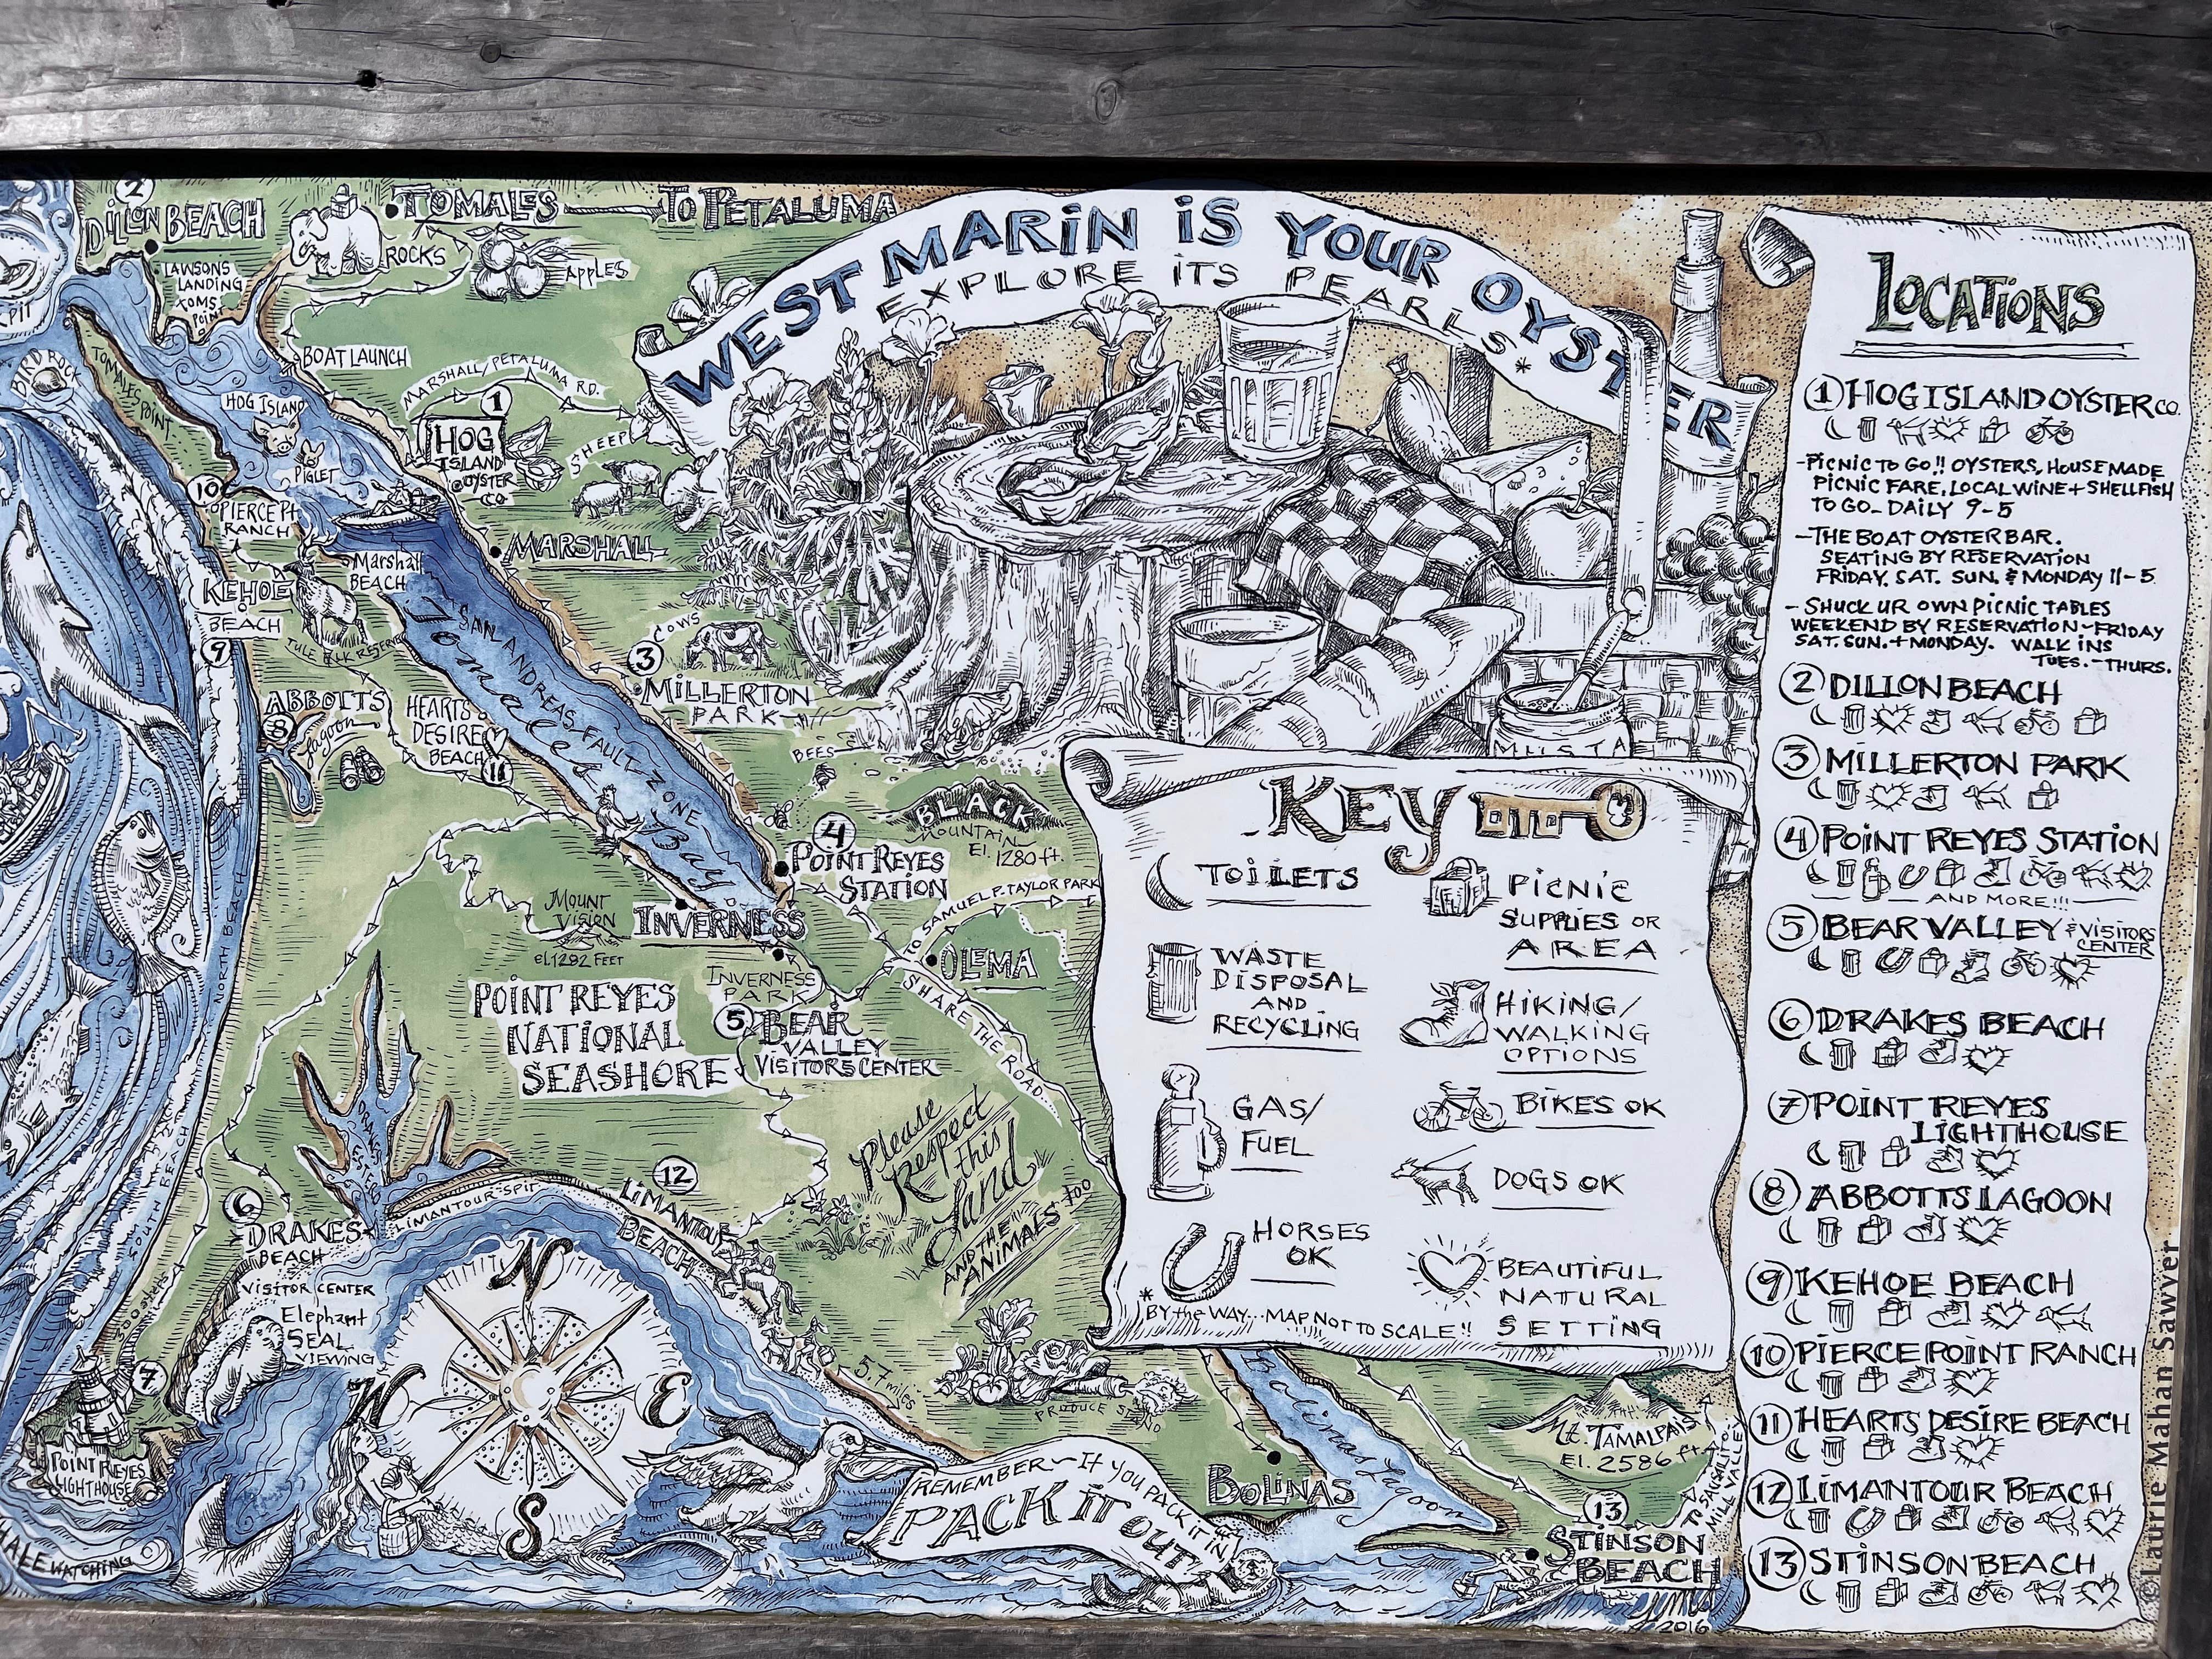 2
DILLON BEACH
LAWSONS
LANDING
TOMS
POINT
TOMALES
TO PETALUMA
ROCKS
APPLES
PIT
BIRD ROCK
TOMALES POINT
BOAT LAUNCH
MARSHALL/PETALUMA RD.
HOG ISLAND
PIGLET
1
HOG
ISLAND
OYSTER
CO
SHEEP
10
PIERCE PT
RANCH
MARSHALL
Marshall
BEACH
KEHOE
BEACH
9
TULE ELK RESERVE
SAN ANDREAS FAULT ZONE
Tomales Bay
COWS
3
MILLERTON
PARK
BEES
ABBOTTS
Lagoon
8
HEARTS
DESIRE
BEACH
11
BLACK
MOUNTAIN
El. 1280 ft.
4
POINT REYES
STATION
TO SAMUEL P. TAYLOR PARK
MOUNT
VISION
el. 1282 FEET
INVERNESS
OLEMA
INVERNESS
PARK
SHARE THE ROAD
POINT REYES
NATIONAL
SEASHORE
5
BEAR
VALLEY
VISITORS CENTER
NORTH BEACH
SOUTH BEACH
DRAKES
ESTERO
Please
Respect
this
Land
AND THE
ANIMALS too
6
DRAKES
BEACH
VISITOR CENTER
Elephant
SEAL
VIEWING
LIMANTOUR SPIT
12
LIMANTOUR
BEACH
7
POINT REYES
LIGHTHOUSE
WHALE WATCHING
N
W
E
S
5.7 miles
PRODUCE STAND
REMEMBER~IF YOU PACK IT IN
PACK IT OUT!
BOLINAS
Bolinas Lagoon
Mt. TAMALPAIS
El. 2586 ft.
TO SAUSALITO/
MILL VALLEY
13
STINSON
BEACH
2016
WEST MARIN IS YOUR OYSTER
EXPLORE ITS PEARLS*
MUSTA
KEY
TOILETS
PICNIC
SUPPLIES OR
AREA
WASTE
DISPOSAL
AND
RECYCLING
HIKING/
WALKING
OPTIONS
GAS/
FUEL
BIKES OK
DOGS OK
HORSES
OK
BEAUTIFUL
NATURAL
SETTING
*BY the WAY...MAP NOT TO SCALE!!
LOCATIONS
1 HOG ISLAND OYSTER CO.
-PICNIC TO GO!! OYSTERS, HOUSEMADE
PICNIC FARE, LOCAL WINE + SHELLFISH
TO GO_ DAILY 9-5
-THE BOAT OYSTER BAR.
SEATING BY RESERVATION
FRIDAY, SAT. SUN. & MONDAY 11-5
- SHUCK UR OWN PICNIC TABLES
WEEKEND BY RESERVATION~FRIDAY
SAT. SUN. + MONDAY. WALK INS
TUES.-THURS.
2 DILLON BEACH
3 MILLERTON PARK
4 POINT REYES STATION
AND MORE!!!
5 BEAR VALLEY & VISITORS
CENTER
6 DRAKES BEACH
7 POINT REYES
LIGHTHOUSE
8 ABBOTTS LAGOON
9 KEHOE BEACH
10 PIERCE POINT RANCH
11 HEARTS DESIRE BEACH
12 LIMANTOUR BEACH
13 STINSON BEACH
©Laurie Mahan Sawyer